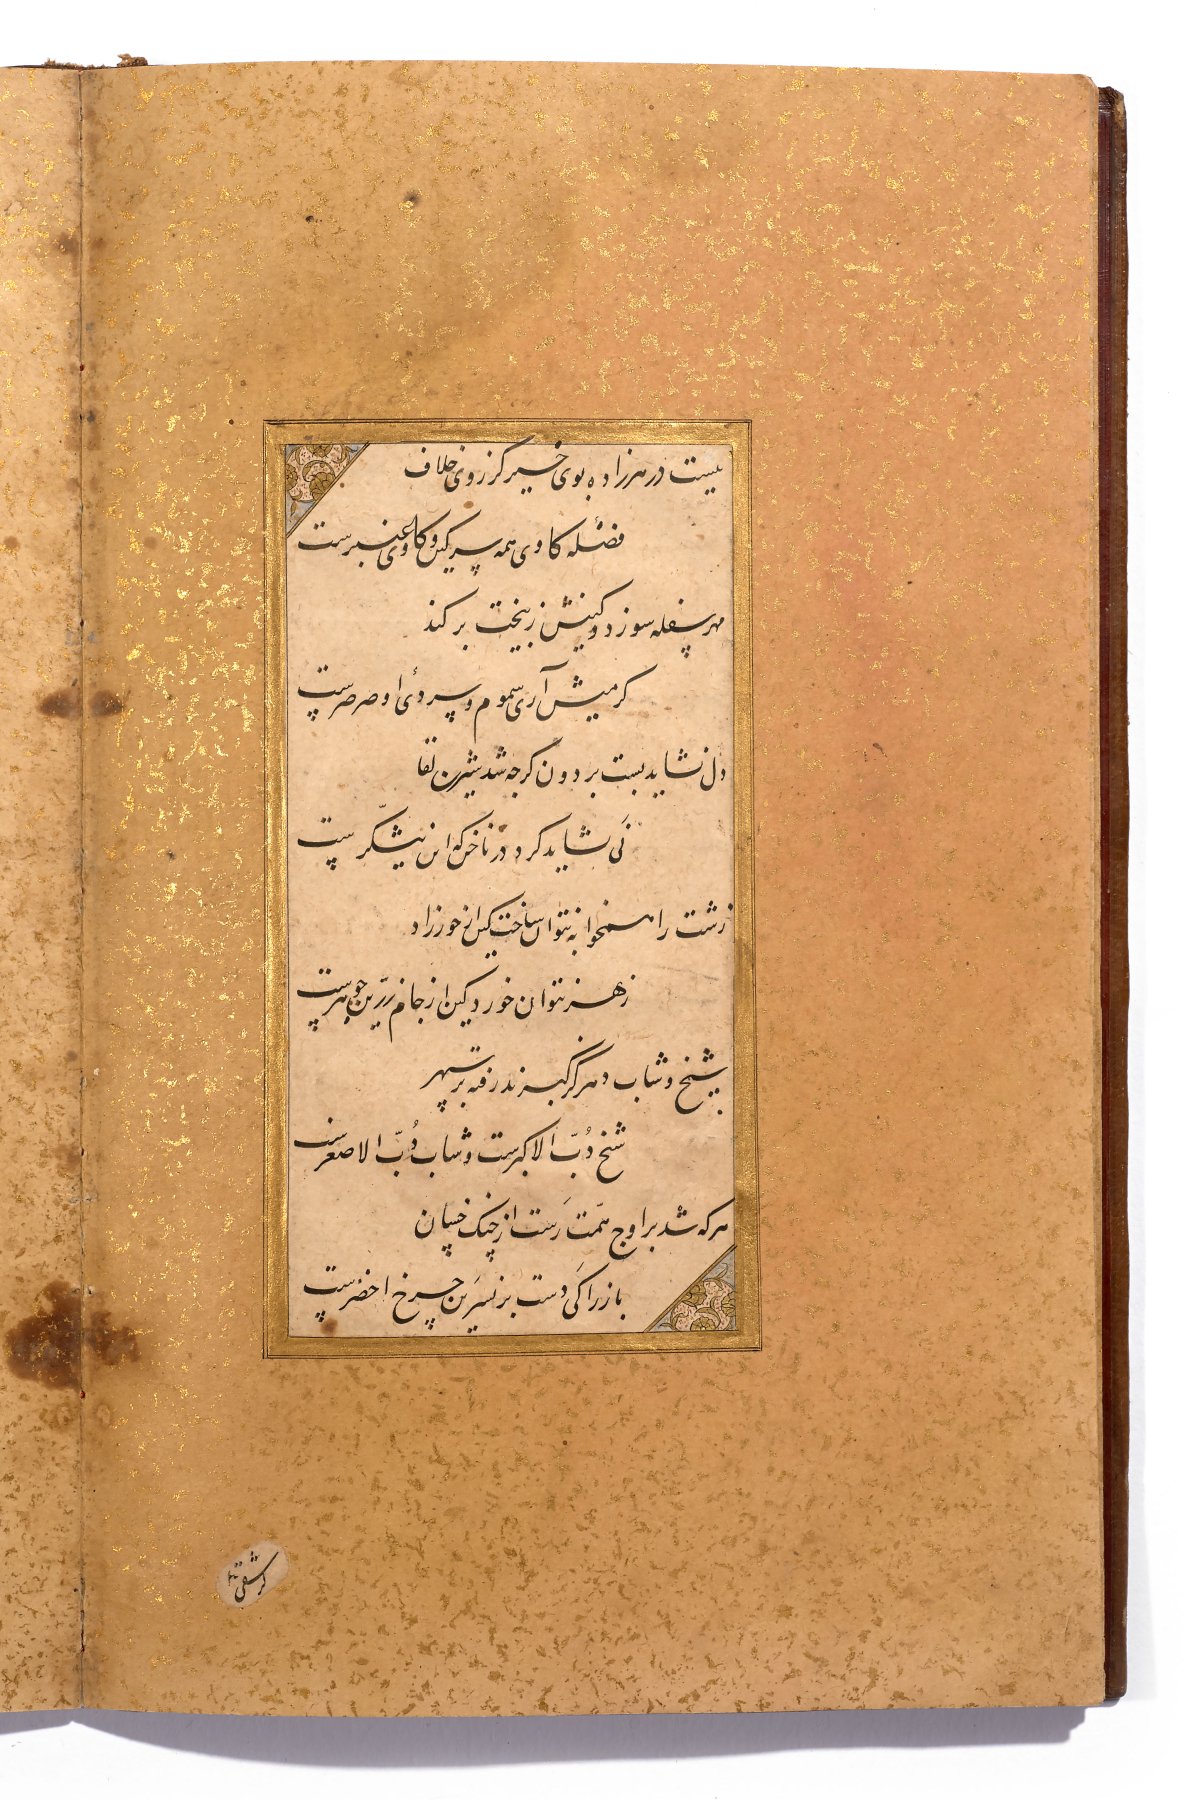 نیست در هر زاده بوی خیر کز روی خلاف
فضلهٔ کاوی همه سرکین و کاوی عنبرست
مهر سفله سوزد و کینش ز بیخت بر کند
کرمیش آری سموم و سردئ او صرصرست
دل نشاید بست بر دون کرچه شد شیرین لقا
نَی نشاید کرد در ناخن که این نیشکّرست
زشت را همخوابه نتوان ساخت کین از حور زاد
زهر نتوان خورد کین از جام زرّین جوهرست
شیخ و شاب دهر کر کیرند رفعه بر سپهر
شیخ دُبّ الاکبرست و شاب دُبّ الاصغرست
هر که شد بر اوج همّت رَست از چنک خسان
باز را کَی دست بر نسرین چرخ اخضرست